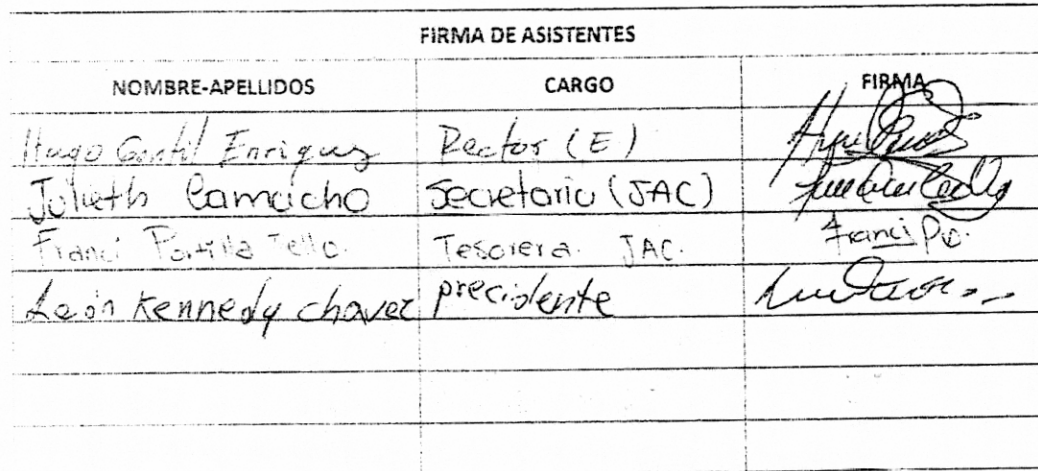 FIRMA DE ASISTENTES
NOMBRE-APELLIDOS CARGO FIRMA
Hugo Gentil Enriquez Rector (E)
Julieth Camacho Secretaria (JAC)
Franci Portilla Tello. Tesorera. JAC. Franci Po.
León Kennedy chavez precidente